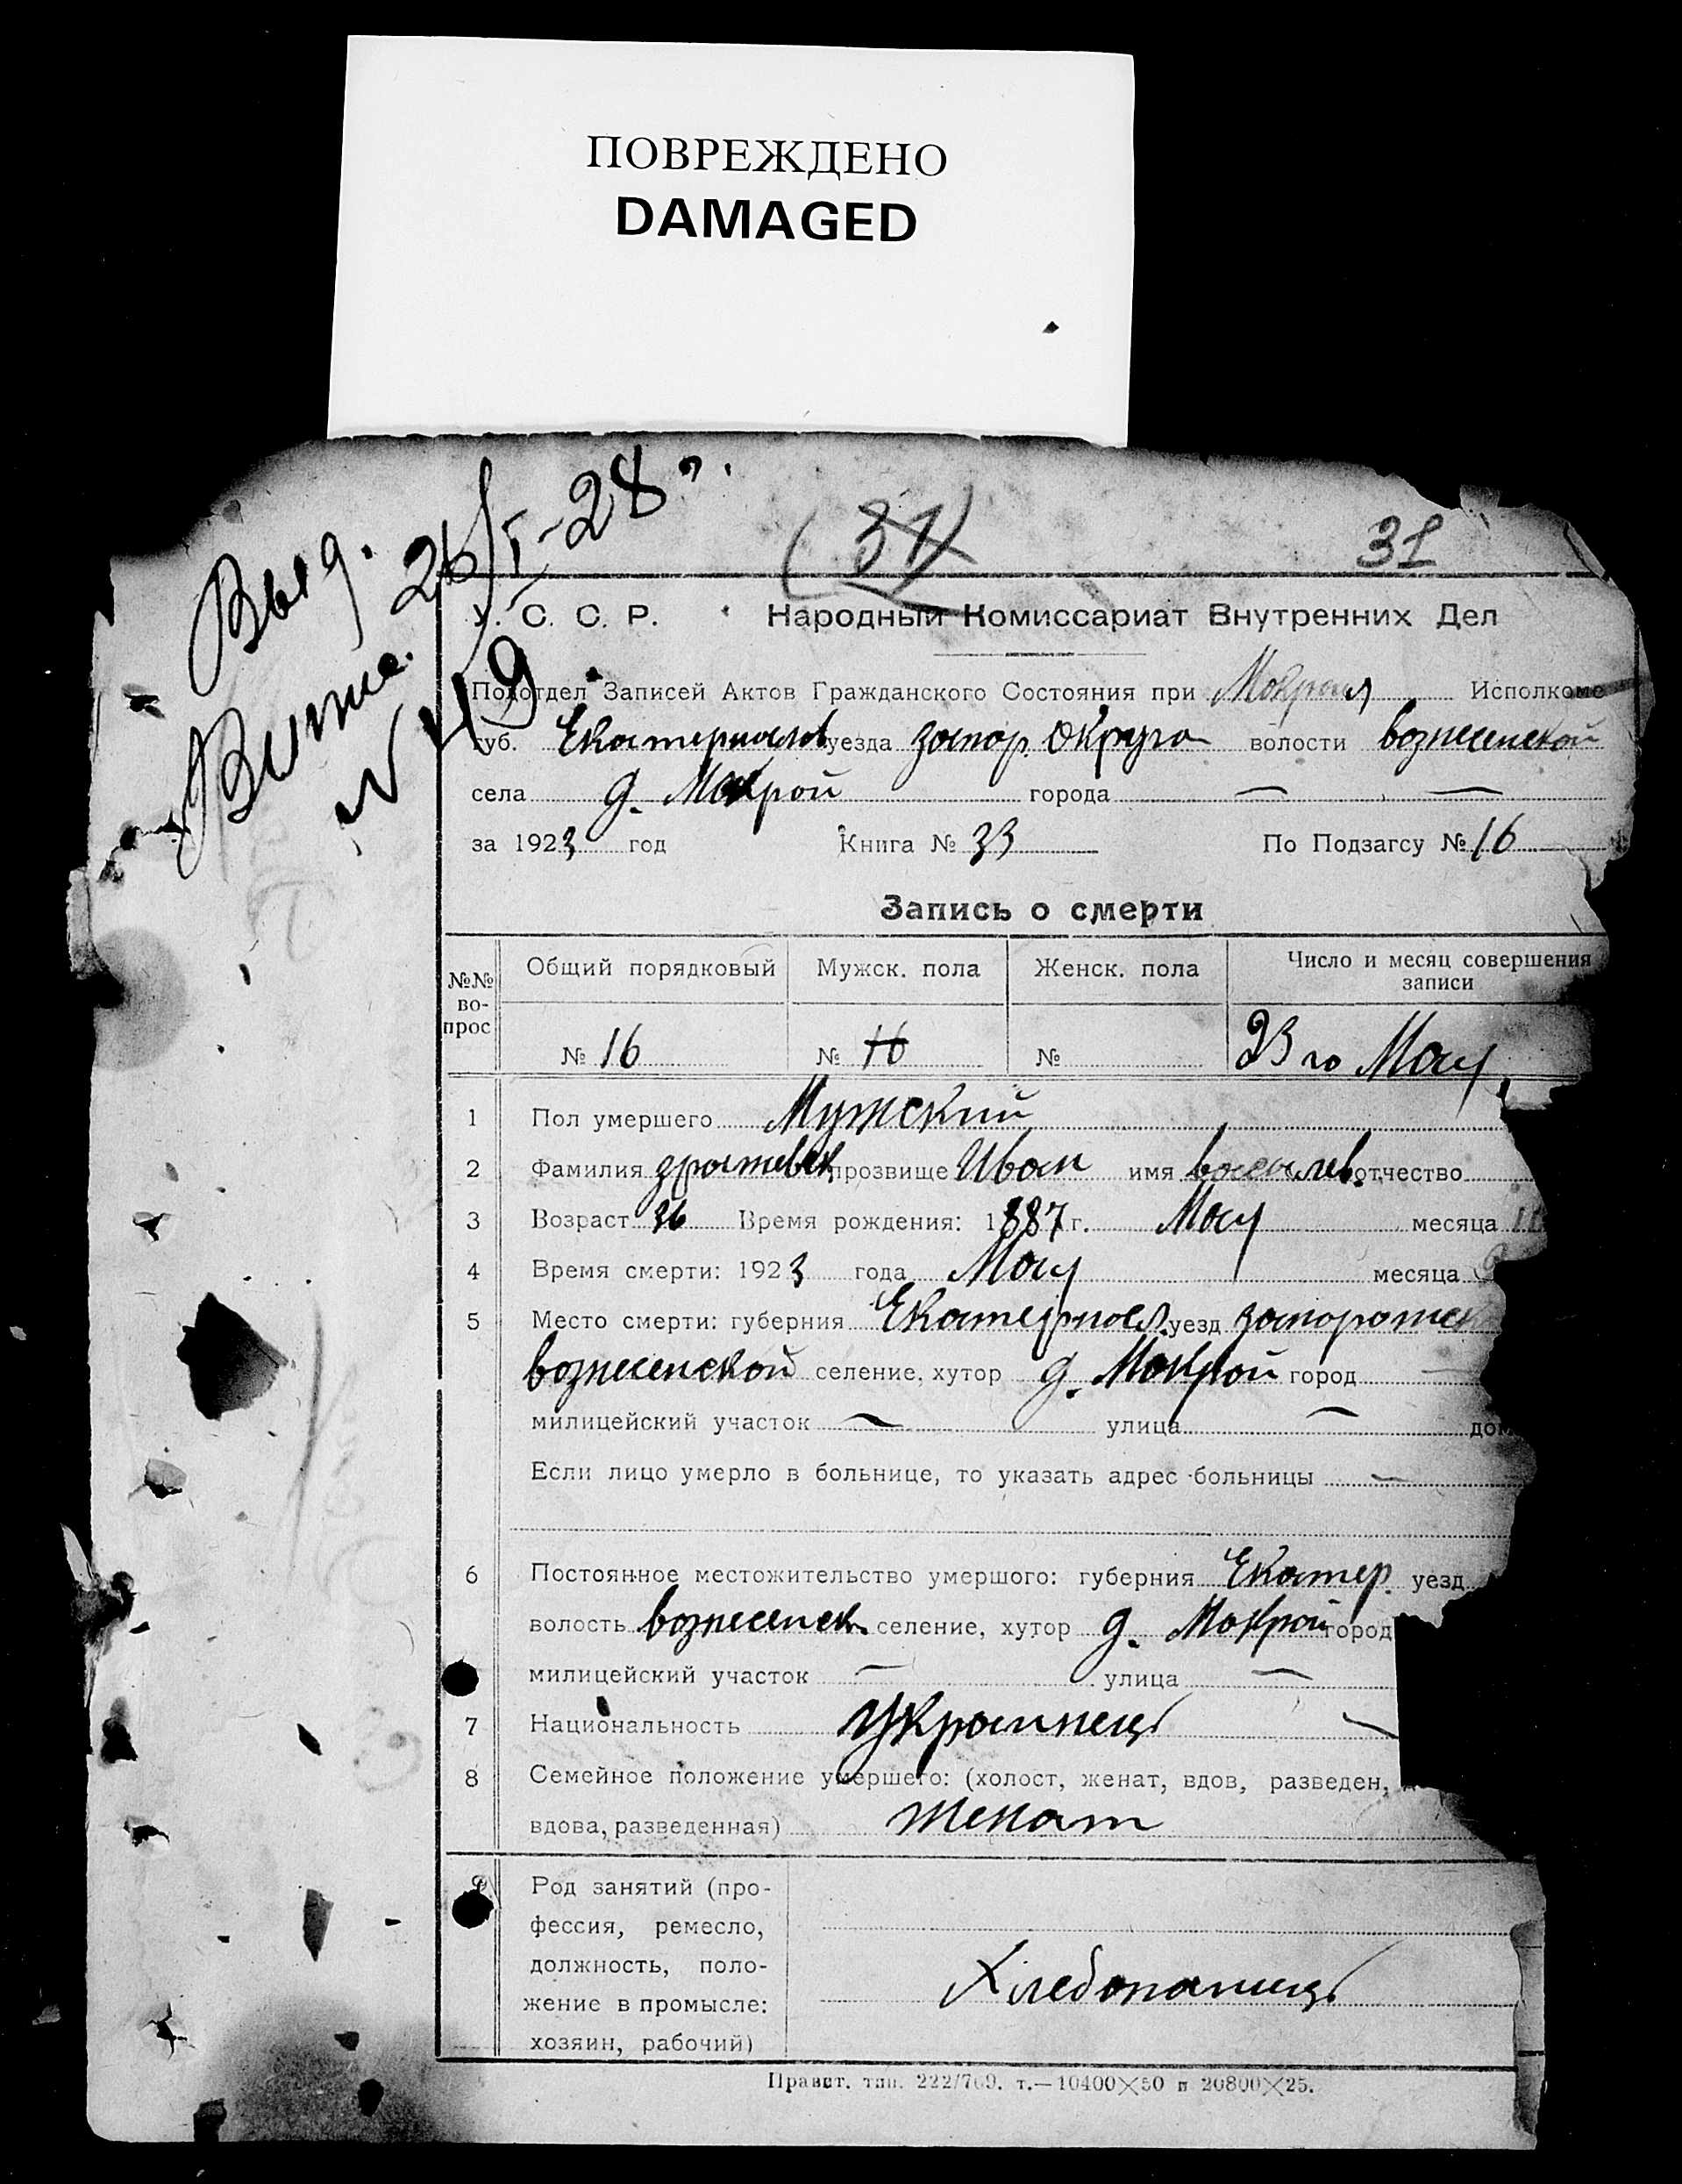 ПОВРЕЖДЕНО
DAMAGED
Выд.
26/V-28 г.
Витяг.
N 49
(31)
31
У. С. С. Р. Народный Комиссариат Внутренних Дел
Подотдел Записей Актов Гражданского Состояния при Исполкоме
губ. Екатеринослов уезда запор. округа волости вознесенской
села д. Мокрой города —
за 1923 год Книга № 33 По Подзагсу № 16
Запись о смерти
№№ вопрос Общий порядковый Мужск. пола Женск. пола Число и месяц совершения записи
№ 16 № № 23 го Мая
1 Пол умершего Мужский
2 Фамилия прозвище Иван имя васылев. отчество
3 Возраст 36 Время рождения: 1887 г. Мая месяца
4 Время смерти: 1923 года Мая месяца
5 Место смерти: губерния Екатериносл. уезд запорожск
вознесенской селение, хутор д. Мокрой город —
милицейский участок — улица — дом
Если лицо умерло в больнице, то указать адрес больницы —
6 Постоянное местожительство умершого: губерния Екатер. уезд
волость вознесенск. селение, хутор д. Мокрой город
милицейский участок — улица —
7 Национальность Украинець
8 Семейное положение умершего: (холост, женат, вдов, разведен,
вдова, разведенная) женат
9 Род занятий (про-
фессия, ремесло,
должность, поло-
жение в промысле:
хозяин, рабочий)
Хлебопашец
Правит. тип. 222/769. т.—10400×50 и 20800×25.